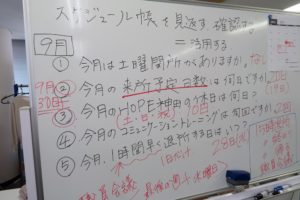 スケジュール帳を見返す、確認する
＝活用する
9月
① 今月は土曜開所がありますか。なし
9月
30日
② 今月の来所予定日数は何日ですか 20日
(19日)
③ 今月のHOPE神田の休日は何日？
(土・日・祝) 10日
④ 今月のコミュニケーショントレーニングは何回ですか 2回
⑤ 今月、1時間早く退所する日はいつ？
1日だけ 28日(水)
15時退所
職員会議
職員会議 最後の週 水曜日